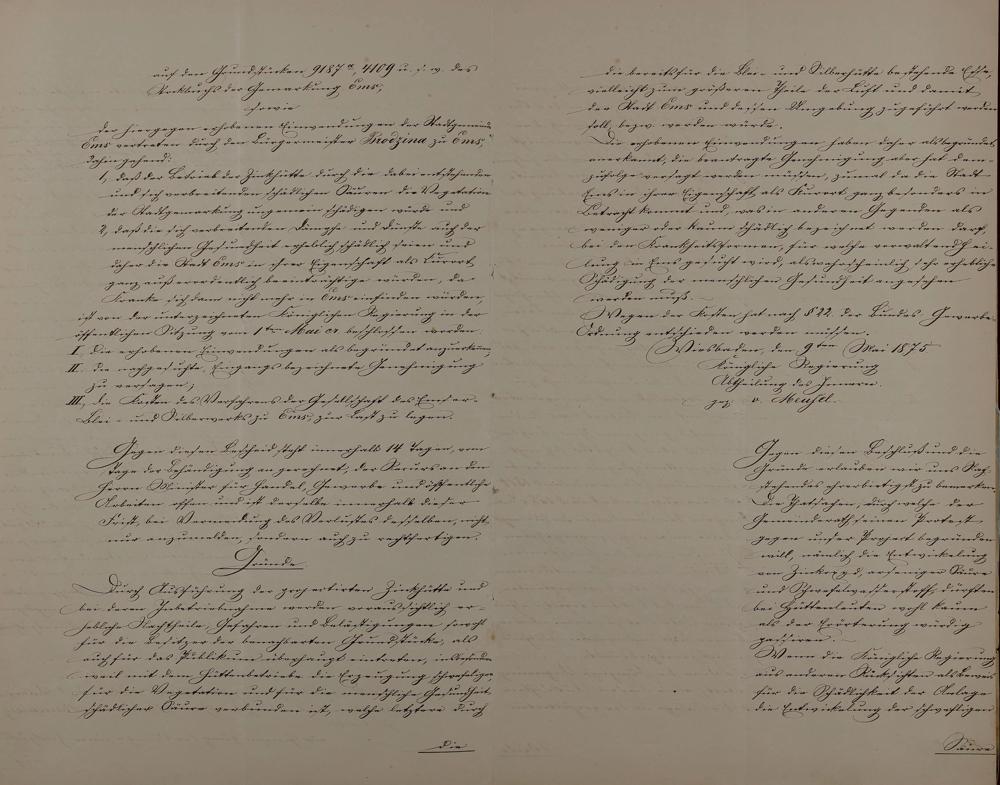 auf den Grundstücken 9187a, 4109 u. s. w. des
Stockbuchs der Gemarkung Ems,
sowie
der hiergegen erhobenen Einwendungen der Stadtgemeinde
Ems vertreten durch den Bürgermeister zu Ems,
dahin gehend:
1, daß der Betrieb der Zinkhütte durch die dabei entstehenden
und sich verbreitenden schädlichen Säuren die Vegetation
der Stadtgemarkung ungemein schädigen würde und
2, daß die sich verbreitenden Dämpfe und Dünste auch der
menschlichen Gesundheit erheblich schädlich seien und
daher die Stadt Ems in ihrer Eigenschaft als Curort
ganz außerordentlich beeinträchtigen würden, da
Kranke sich dann nicht mehr in Ems einfinden würden,
ist von der unterzeichneten Königlichen Regierung in der
öffentlichen Sitzung vom 1ten Mai cr. beschlossen worden.
I. die erhobenen Einwendungen als begründet anzuerkennen,
II. die nachgesuchte, Eingangs bezeichnete Genehmigung
zu versagen,
III. die Kosten des Verfahrens der Gesellschaft des Emser-
Blei- und Silberwerks zu Ems, zur Last zu legen.
Gegen diesen Bescheid steht innerhalb 14 Tagen, vom
Tage der Behändigung an gerechnet, der Recurs an den
Herrn Minister für Handel, Gewerbe und öffentliche
Arbeiten offen und ist derselbe innerhalb dieser
Frist, bei Vermeidung des Verlustes desselben, nicht
nur anzumelden, sondern auch zu rechtfertigen.
Gründe
Durch Ausführung der projectirten Zinkhütte und
bei deren Inbetriebnahme werden voraussichtlich er-
hebliche Nachtheile, Gefahren und Belästigungen sowohl
für die Besitzer der benachbarten Grundstücke, als
auch für das Publikum überhaupt eintreten, insbesondere
weil mit dem Hüttenbetriebe die Erzeugung schwefeliger
für die Vegetation und für die menschliche Gesundheit
schädlicher Säure verbunden ist, welche letztere durch
die
die bereits für die Blei- und Silberhütte bestehende Esse,
vielleicht zum größeren Theile der Luft und damit
der Stadt Ems und dessen Umgebung zugeführt werden
soll, bezw. werden würde.
Die erhobenen Einwendungen haben daher als begründet
anerkannt, die beantragte Genehmigung aber hat dem-
zufolge versagt werden müssen, zumal da die Stadt
Ems in ihrer Eigenschaft als Kurort ganz besonders in
Betracht kommt und, was in anderen Gegenden als
weniger oder kaum schädlich bezeichnet werden darf,
bei den Krankheitsformen, für welche vorwaltend Hei-
lung in Ems gesucht wird, als wahrscheinlich sehr erhebliche
Schädigung der menschlichen Gesundheit angesehen
werden muß. –
Wegen der Kosten hat nach § 22. der Bundes Gewerbe-
Ordnung entschieden werden müssen.
Wiesbaden, den 9ten Mai 1875
Königliche Regierung
Abtheilung des Innern.
gez. v. Meusel.
Gegen diesen Beschluß und die
Gründe erlauben wir uns Nach-
stehendes ehrerbietigst zu bemerken.
Die Thatsachen, durch welche der
Gemeinderath seinen Protest
gegen unser Project begründen
will, nämlich die Entwickelung
von Zinkoxyd, arseniger Säure
und Schwefelwasserstoff, dürften
bei Hüttenleuten wohl kaum
als der Erörterung würdig
passiren. –
Wenn die Königliche Regierung
aus anderen Rücksichten als Beweis
für die Schädlichkeit der Anlage
die Entwickelung der schwefligen
Säure